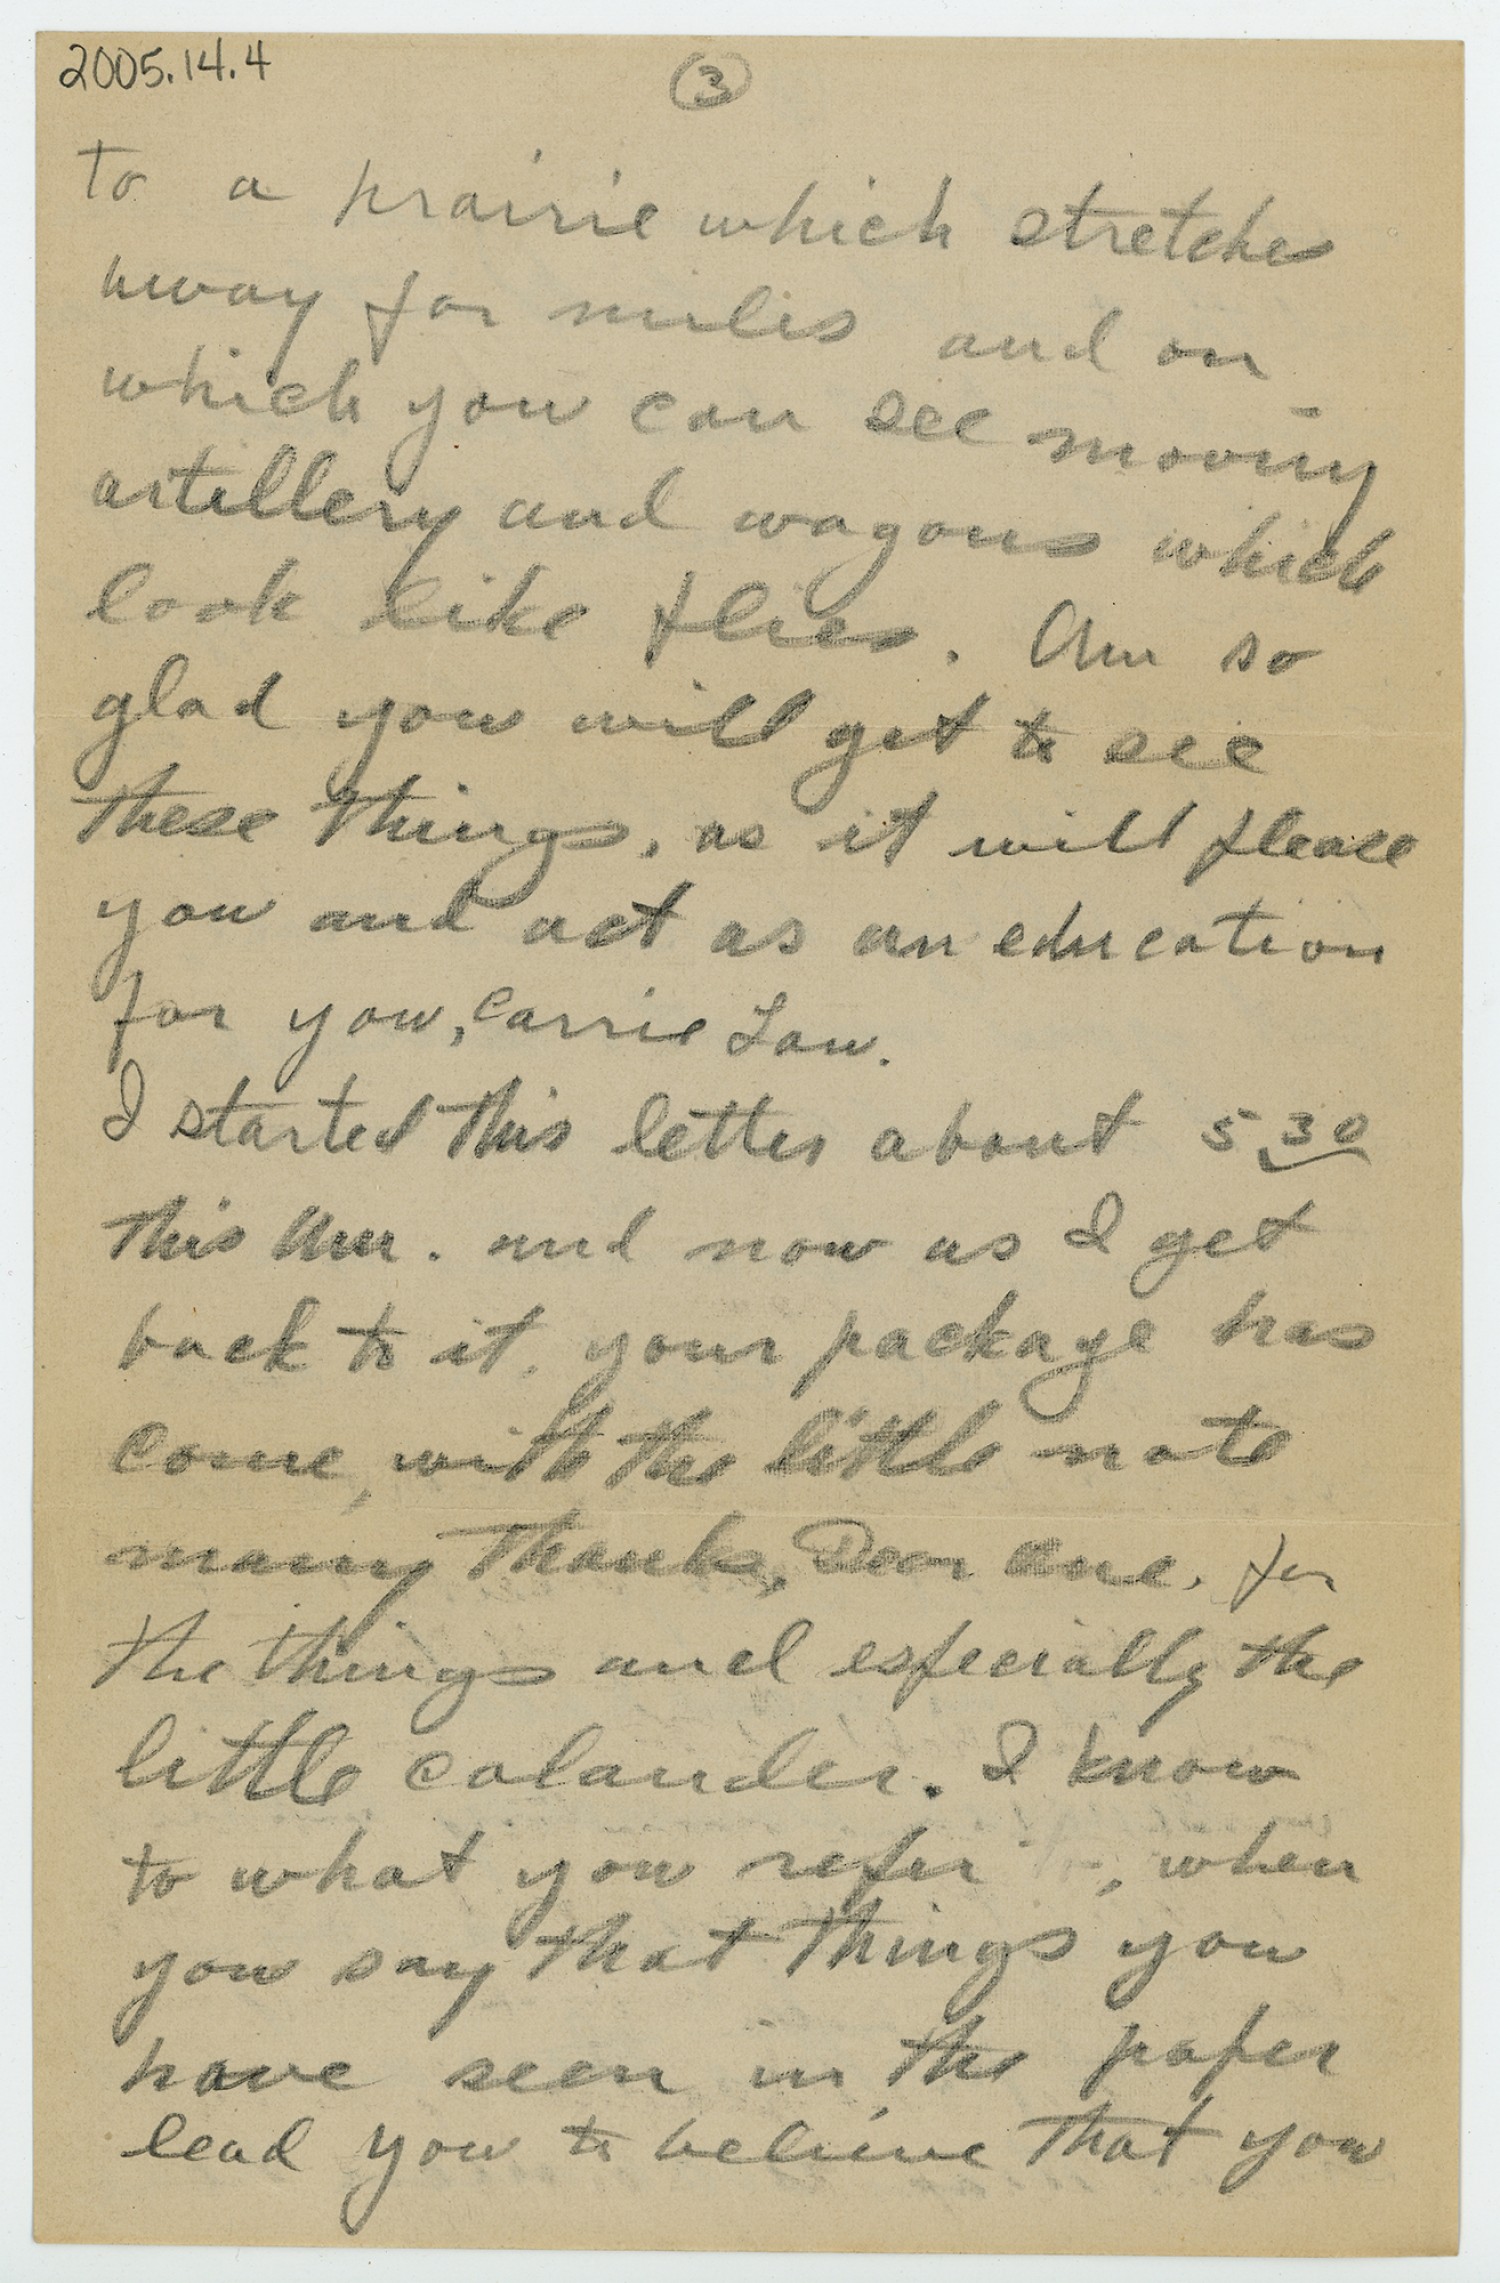 2005.14.4
(3)
to a prairie which stretches
away for miles and on
which you can see moving
artillery and wagons which
look like flies. Am so
glad you will get to see
these things, as it will please
you and act as an education
for you, Carrie Lou.
I started this letter about 5 30
this Am. and now as I get
back to it, your package has
come, with the little note
many thanks, Dear One, for
the things and especially the
little calander. I know
to what you refer, when
you say that things you
have seen in the paper
lead you to believe that you